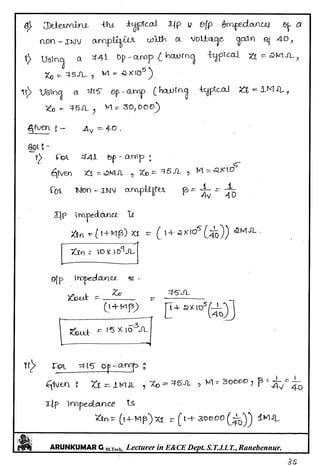 Q) Determine the typical I/P & O/P Impedances of a
non-INV amplifier with a voltage gain of 40,
i) Using a 741 op-amp (having typical Zi = 2MΩ,
Zo = 75Ω, M = 2X10⁵)
ii) Using a 715 op-amp (having typical Zi = 1MΩ,
Zo = 75Ω, M = 30,000)
Given :- Av = 40.
Sol :-
i) For 741 op-amp :
Given Zi = 2MΩ, Zo = 75Ω, M = 2X10⁵
For Non-INV amplifier β = 1/Av = 1/40
I/P impedance is
Zin = (1+Mβ) Zi = (1 + 2X10⁵ (1/40)) 2MΩ.
Zin = 10 X 10⁹Ω
O/P impedance is :
Zout = Zo/(1+Mβ) = 75Ω/[1 + 2X10⁵(1/40)]
Zout = 15 X 10⁻³Ω
ii) For 715 op-amp :
Given : Zi = 1MΩ, Zo = 75Ω, M = 30000, β = 1/Av = 1/40
I/P impedance is
Zin = (1+Mβ) Zi = (1 + 30000 (1/40)) 1MΩ.
ARUNKUMAR G M.Tech, Lecturer in E&CE Dept. S.T.J.I.T., Ranebennur.
35